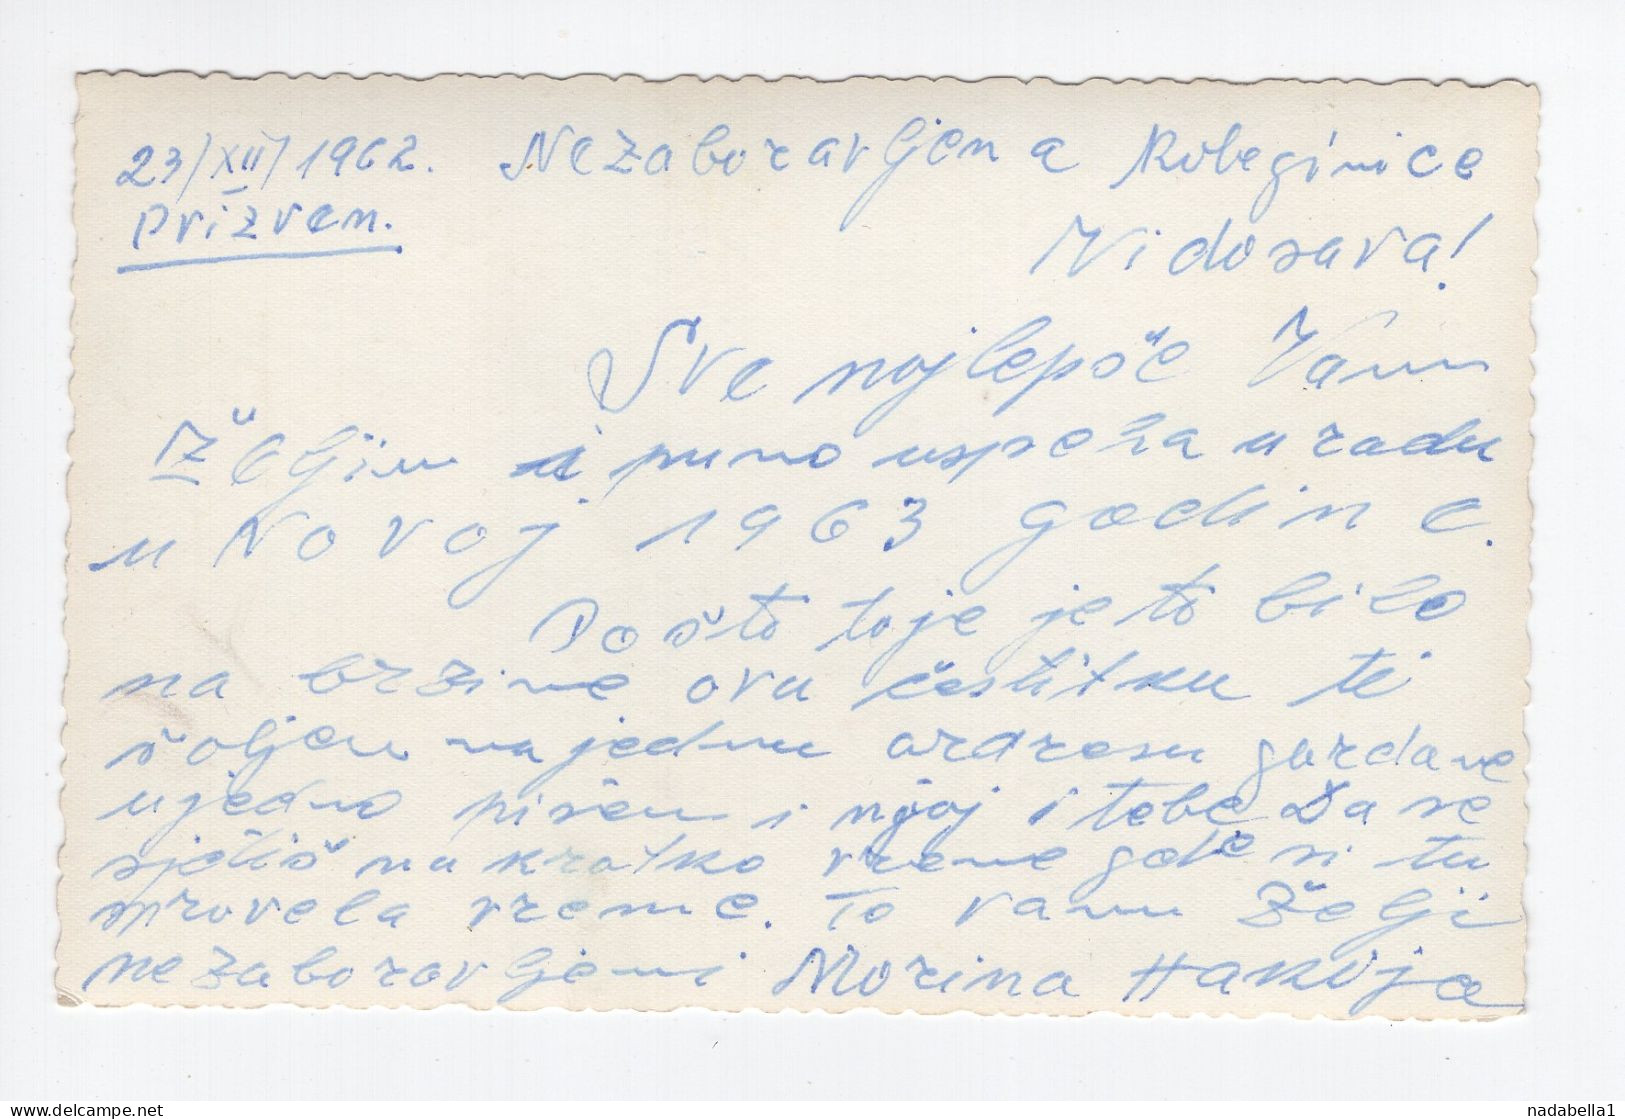 23/XII/1962. Nezaboravljena Koleginice
Prizren.
Vidosava!
Sve najlepše Vam
Željim i puno uspeha u radu
u Novoj 1963 godine.
Pošto to je je to bilo
na brzine ovu čestitku ti
šaljem na jednu ardresu gordane
ujedno pišem i njoj i tebe Da se
sjetiš na kratko vreme gde si tu
provela vreme. To vam želji
nezaboravljeni Morina Hakija
delcampe.net
nadabella1